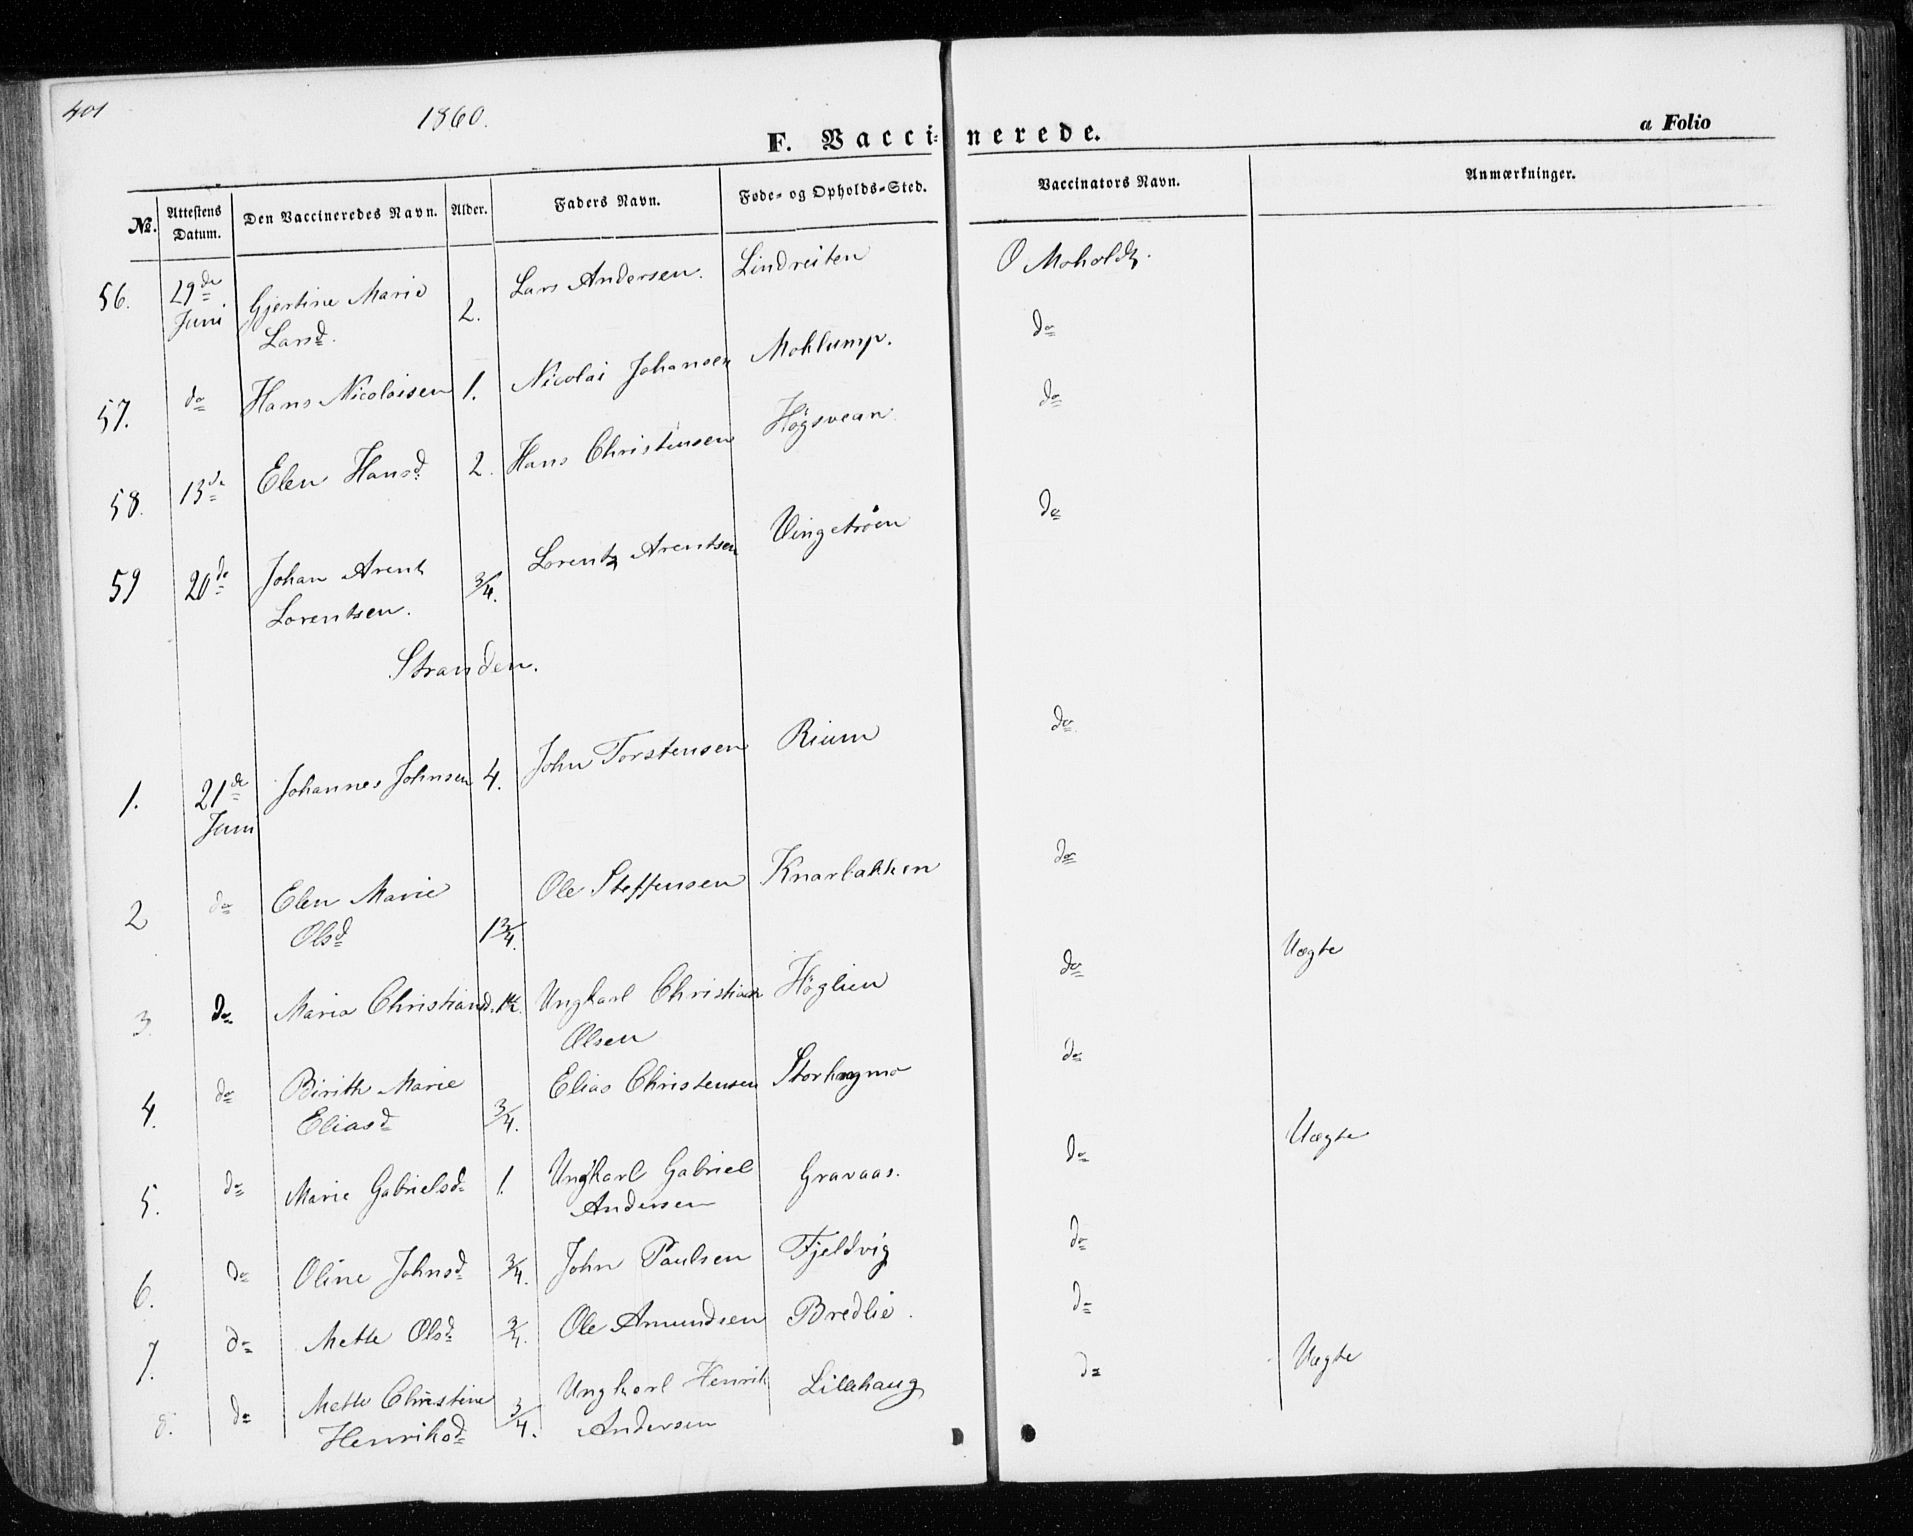 401
1860.
F. Vaccinerede.
a Folio
№. Attestens Datum. Den Vaccineredes Navn. Alder. Faders Navn. Føde- og Opholds-Sted. Vaccinators Navn. Anmærkninger.
56. 29de Juni Gjertine Marie Larsd. 2. Lars Andersen. Lindreiten O Moholdt.
57. do Hans Nicolaisen 1. Nicolai Johansen Moklump. do
58. 13de Elen Hansd 2. Hans Christensen Högsvean do
59 20de Johan Arent Lorentsen. 3/4. Lorentz Arentsen Vingetrøen do
Stranden.
1. 21de Juni Johannes Johnsen 4. John Torstensen Rium do
2 do Elen Marie Olsd 1 3/4. Ole Steffensen Knarbakken do
3. do Maria Christiansd. Ungkarl Christian Olsen Höglien do Uægte
4. do Birith Marie Eliasd 3/4. Elias Christensen Storhaugmo do
5. do Marie Gabrielsd 1. Ungkarl Gabriel Andersen Gravaas. do Uægte
6. do Oline Johnsd 3/4. John Paulsen Fjeldvig do
7. do Mette Olsd 3/4. Ole Amundsen Bredlie. do
8. do Mette Christine Henriksd 3/4. Ungkarl Henrik Andersen Lillehaug do Uægte